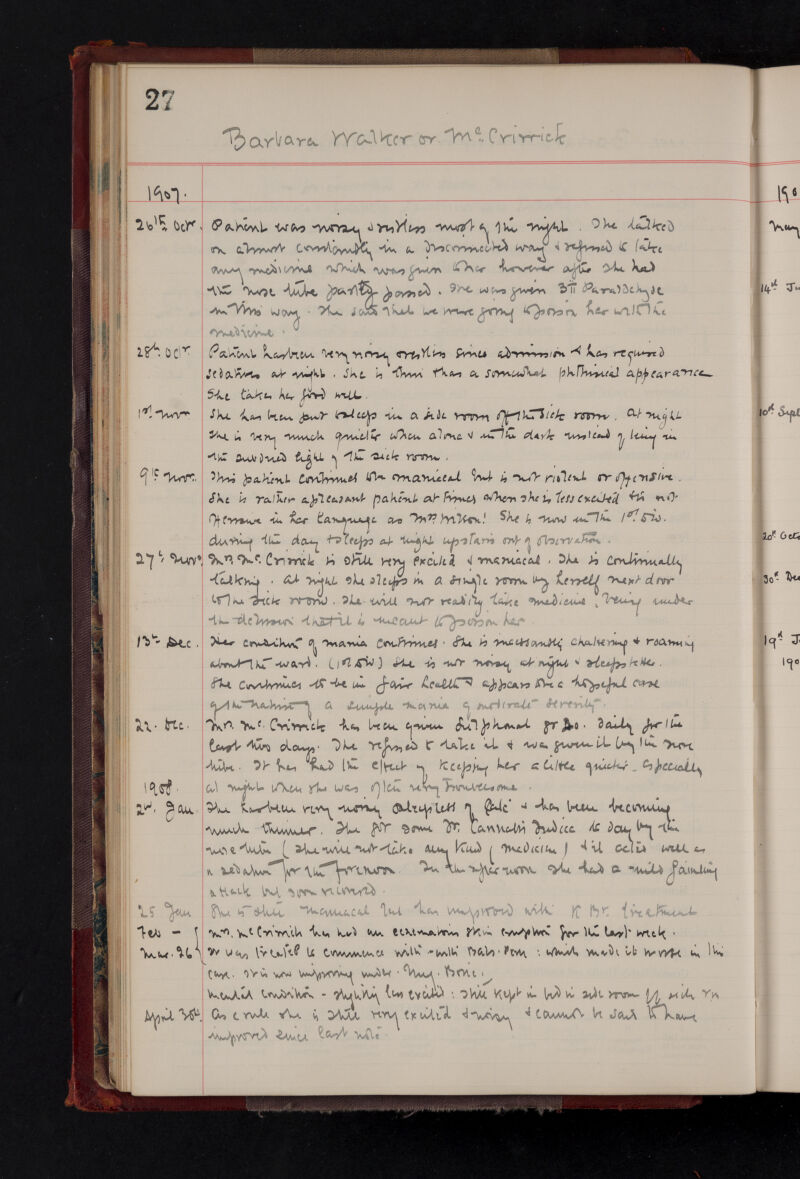 27
Barbara Walker or McCrirrick
1907.
26th Octr. Patient was noisy & restless most of the night. She talked
on almost constantly in a disconnected way & refused to take
any medicine which was given to her however after she had
the nose tube partly passed. She was given ʒii Paraldehyde
in this way. She said that we were going to poison her with the
medicine.
28th Octr. Patient has been very noisy & restless since admission & has required
sedatives at night. She is thin & has a somewhat phthisical appearance
She takes her food well.
1st Novr She has been put to sleep in a side room off the sick room. At night
she is very much quieter when alone & in the dark instead of being in
the subdued light of the sick room.
9th Novr. This patient continues to be maniacal but is not violent or offensive.
She is rather a pleasant patient at times when she is less excited & is not
offensive in her language as Mrs Wilson! She is now in the 1st
during the day & sleeps at night upstairs out of observation.
27th Novr. Mrs. McCrirrick is still very excited & maniacal. She is continually
talking. At night she sleeps in a single room by herself next door
to the sick room. She will not readily take medicine, being under
the delusion that it is meant to poison her.
13th Dec. Her condition of mania continues. She is incessantly chattering & roaming
about the ward. (1st) She is not noisy at night & sleeps better.
She continues to be in fair health & appears to be a hopeful case
of the nature of a simple mania of moderate severity.
22. Dec. Mrs. McCrirrick has been given Sulphonal gr 20. daily for the
last two days. She refused to take it & was given it by the nose
tube. It has had the effect of keeping her a little quieter - especially
at night when she was often very troublesome.
1908.
2nd. Jan She has been very noisy & sleepless of late & has been becoming
much thinner. She got some Tr. Cannabis Indica to day by the
nose tube (she will not take any kind of medicine) & it acted well as
a sedative for the forenoon. In the afternoon she had a mild fainting
attack but soon recovered.
25 Jan She is still maniacal but has improved with K Br. treatment
Feb - Mrs. McCrirrick has had an eczematous skin eruption for the last week.
Mar. 26 It was treated to commence with - with : which made it worse in this
case. It is now improving under Ung. Boric.
Mental condition - slightly less excited: still kept in bed in side room off sick rm
April 30th. As a rule she is still very excited & noisy & cannot be said to have
improved since last note.
190
May
14th Ju
10th Sept
20th Octo
30th De
19th J
190